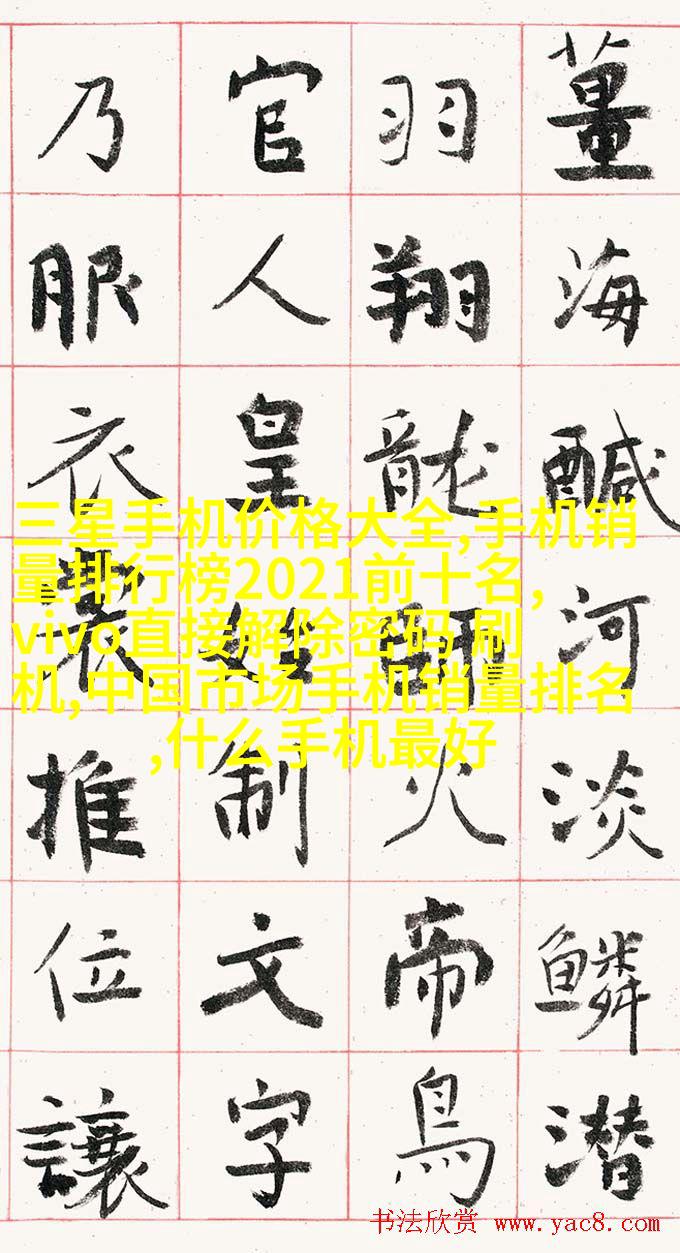 薑海鹹河淡鱗潛
羽翔龍師火帝鳥
官人皇始制文字
乃服衣裳推位讓
三星手机价格大全,手机销
量排行榜2021前十名,
vivo直接解除密码 刷
机,中国市场手机销量排名
,什么手机最好
书法欣赏 www.yac8.com